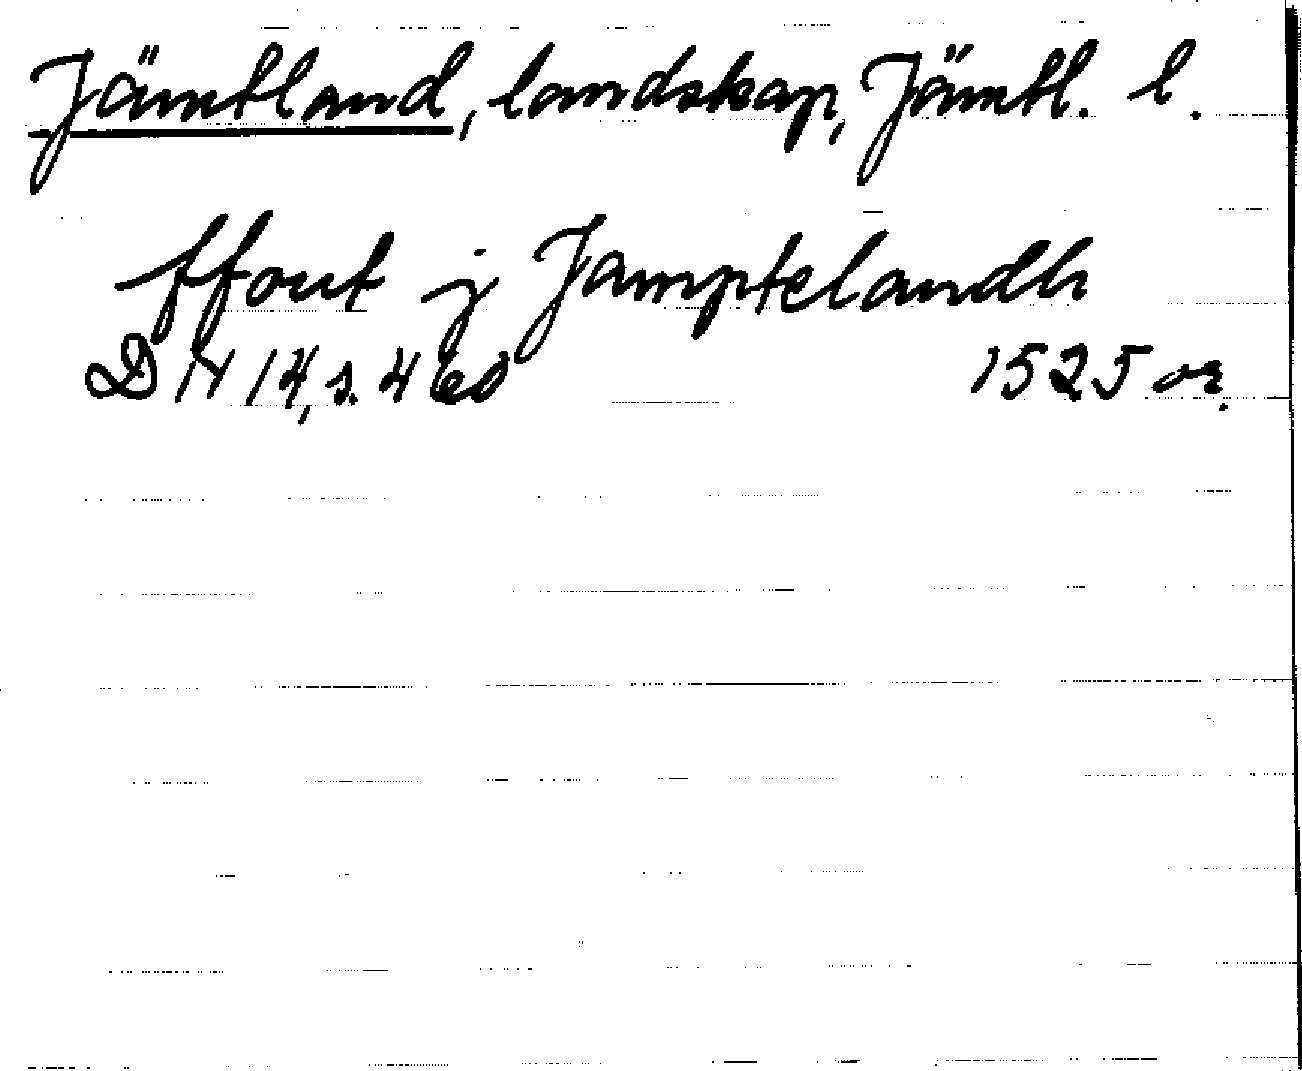 Jämtland, landskap, Jämtl. l.
ffout j Jamptelandh
DN 14, s. 460 1525 or.